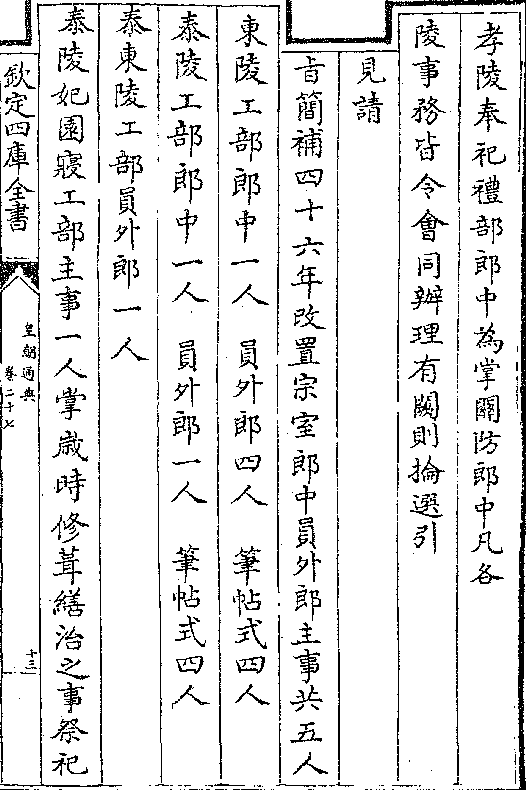 孝陵奉祀禮部郎中為掌關防郎中凡各
陵事務皆令會同辦理有闕則掄選引
見請
旨簡補四十六年改置宗室郎中員外郎主事共五人
東陵工部郎中一人　員外郎四人　筆帖式四人
泰陵工部郎中一人　員外郎一人　筆帖式四人
泰東陵工部員外郎一人
泰陵妃園寢工部主事一人掌歲時修葺繕治之事祭祀
欽定四庫全書
皇朝通典
卷二十七
十三